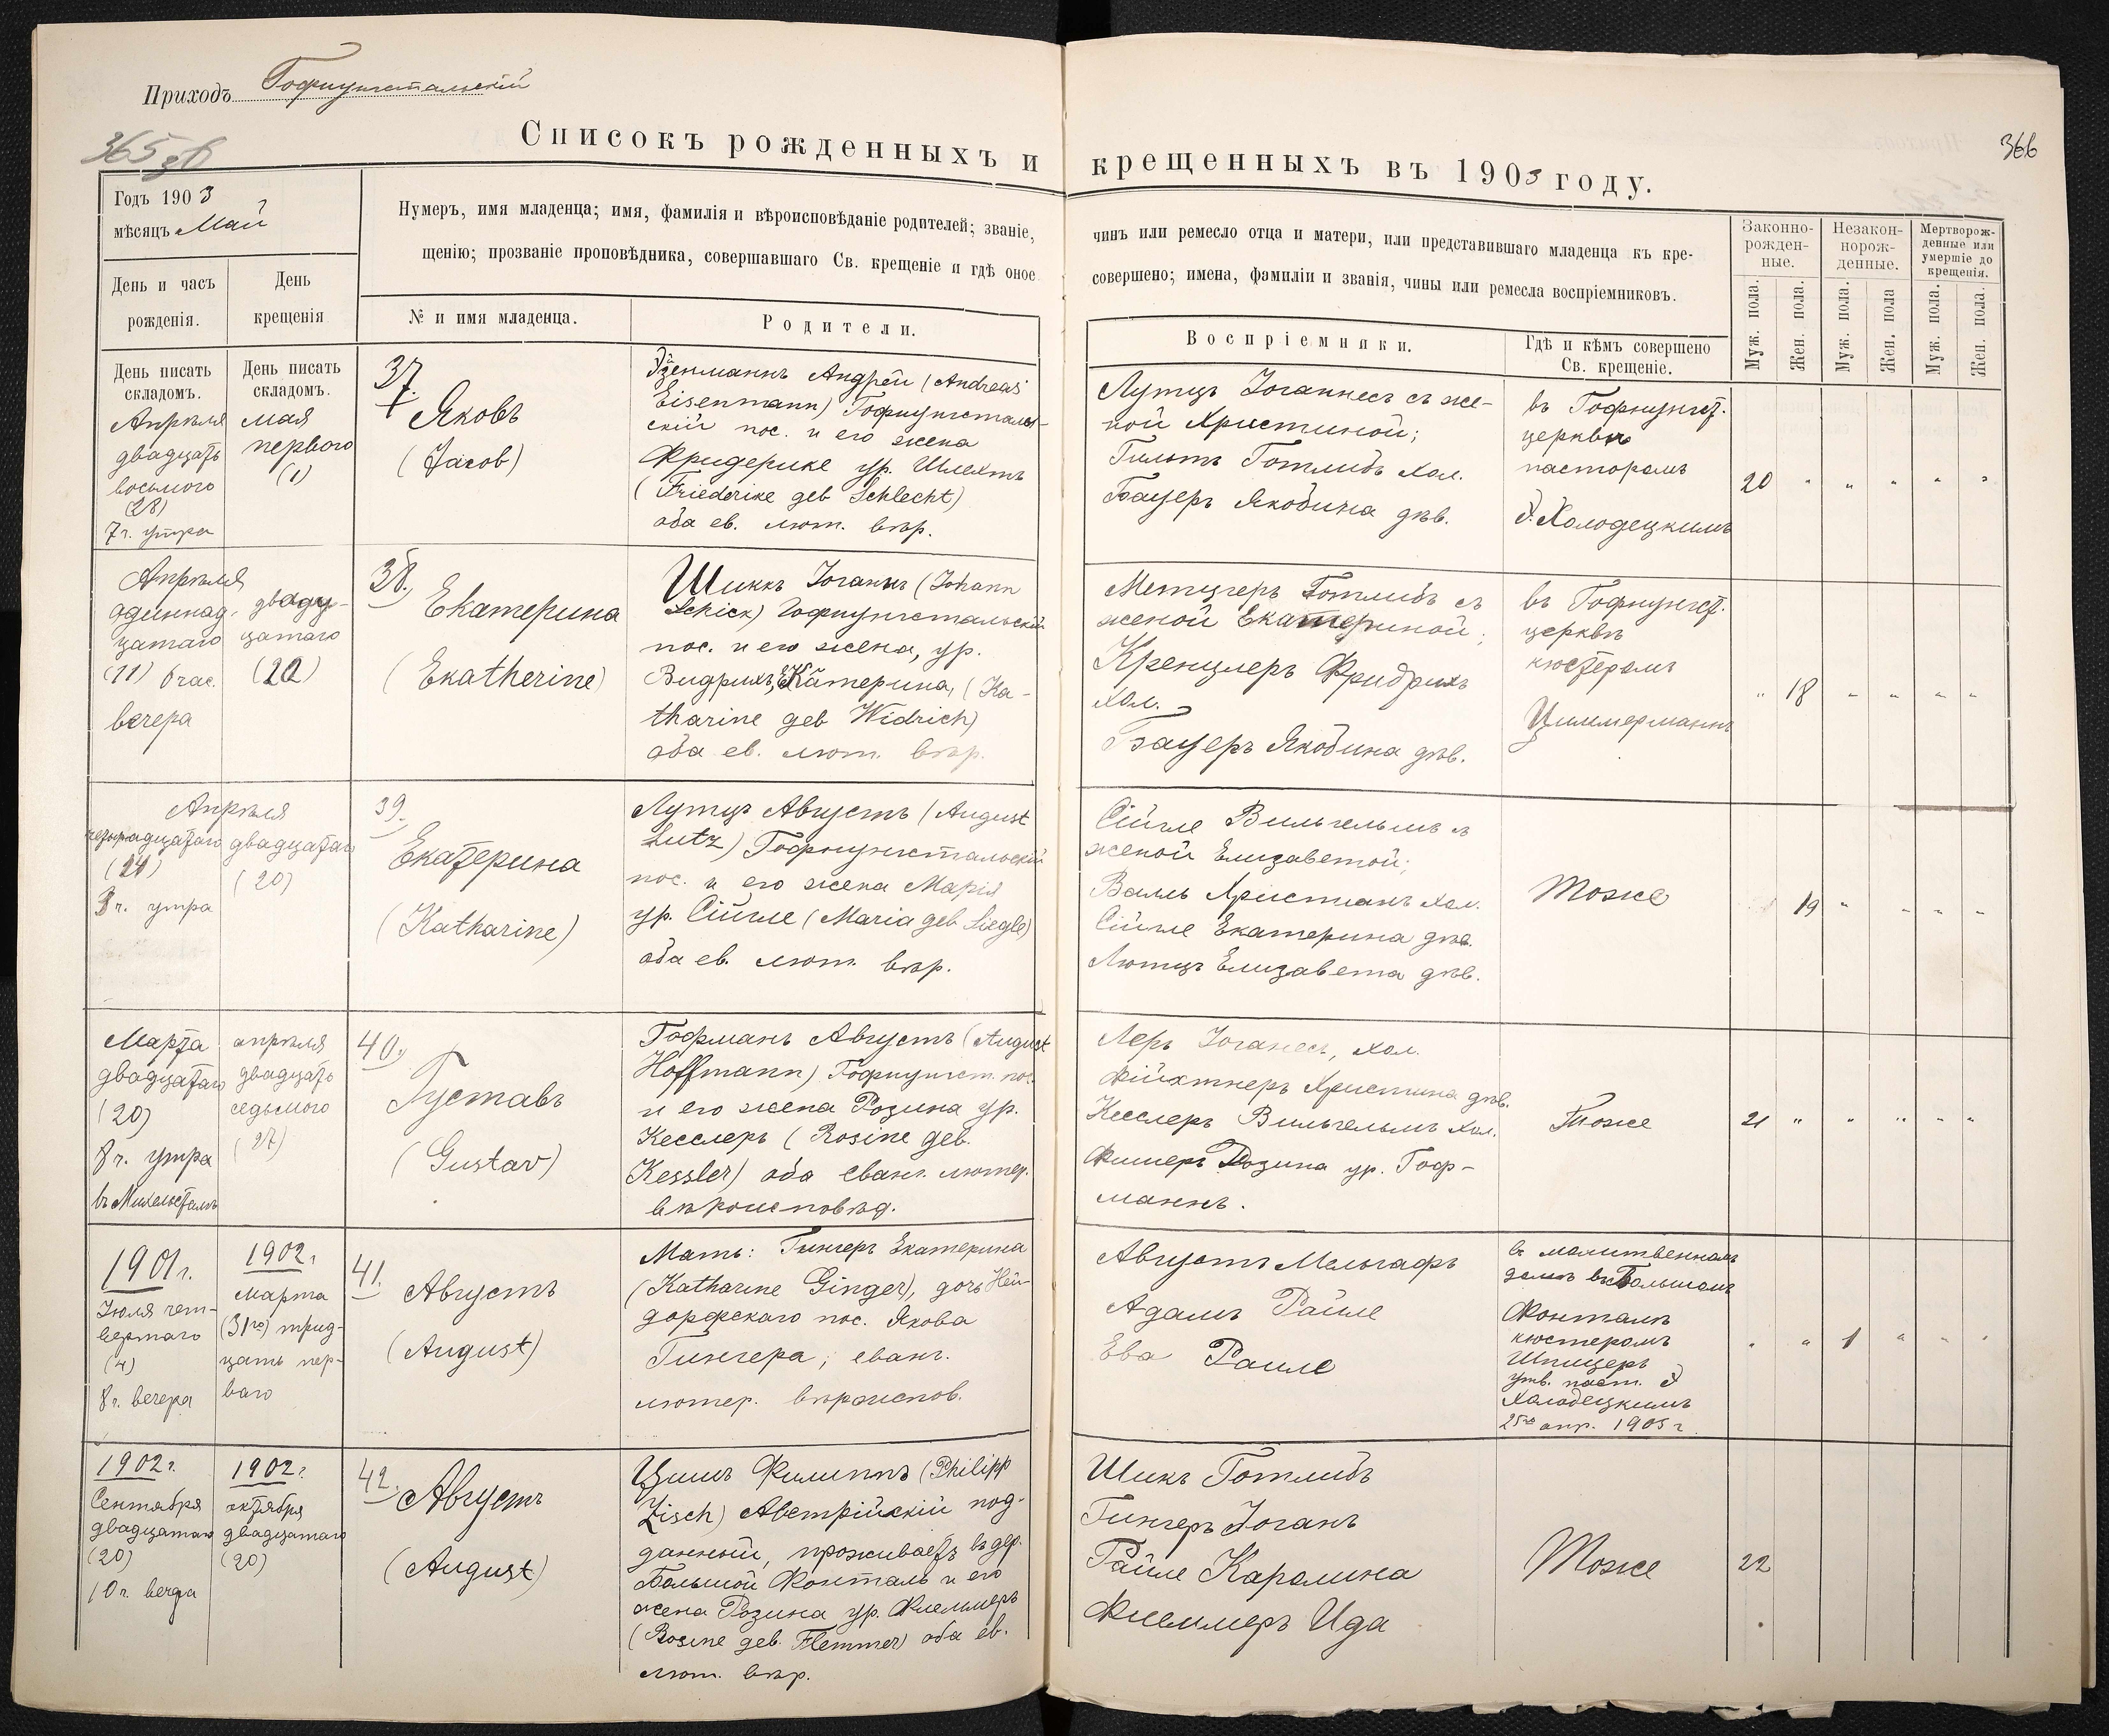 Приходъ Гофнунгстальскій
365 об
366
Списокъ рожденныхъ и крещенныхъ въ 1903 году.
Годъ 1903
мѣсяцъ Май
Нумеръ, имя младенца; имя, фамилія и вѣроисповѣданіе родителей; званіе,
чинъ или ремесло отца и матери, или представившаго младенца къ кре-
щенію; прозваніе проповѣдника, совершавшаго Св. крещеніе и гдѣ оное
совершено; имена, фамиліи и званія, чины или ремесла воспріемниковъ.
День и часъ
рожденія.
День
крещенія
№ и имя младенца.
Родители.
Воспріемники.
Гдѣ и кѣмъ совершено
Св. крещеніе.
Законно-
рожден-
ные.
Незакон-
норож-
денные.
Мертворож-
денные или
умершіе до
крещенія.
Муж. пола.
Жен. пола.
Муж. пола.
Жен. пола
Муж. пола.
Жен. пола.
День писать
складомъ.
День писать
складомъ.
Апрѣля
двадцать
восьмого
(28)
7 ч. утра
мая
перваго
(1)
37.
Яковъ
(Jacob)
Эйзенманнъ Андрей (Andreas
Eisenmann) Гофнунгсталь-
скій пос. и его жена
Фридерике ур. Шлехтъ
(Friederike geb Schlecht)
оба ев. лют. вѣр.
Лутцъ Іоганнесъ съ же-
ной Христиной;
Гильтъ Готлибъ хол.
Бауеръ Якобина дѣв.
въ Гофнунгст.
церкви
пасторомъ
Холодецкимъ
20
Апрѣля
одиннад-
цатаго
(11) 6 час.
вечера
двад-
цатаго
(20)
38.
Екатерина
(Ekatherine)
Шиккъ Іоганнъ (Johann
Schick) Гофнунгстальскій
пос. и его жена, ур.
Видрихъ, Екатерина, (Ka-
tharine geb Widrich)
оба ев. лют. вѣр.
Метцгеръ Готлибъ съ
женой Екатериной;
Кренцлеръ Фридрихъ
хол.
Бауеръ Якобина дѣв.
въ Гофнунгст.
церкви
кюстеромъ
Циммерманнъ
18
Апрѣля
четырнадцатаго
3 ч. утра
двадцатаго
(20)
39.
Екатерина
(Katharine)
Лутцъ Августъ (August
Lutz) Гофнунгстальскій
пос. и его жена Марія
ур. Сійгле (Maria geb Siegle)
оба ев. лют. вѣр.
Сійгле Вильгельмъ съ
женой Елизаветой;
Валль Христіанъ хол.
Сійгле Екатерина дѣв.
Лютцъ Елизавета дѣв.
Тоже
19
Марта
двадцатаго
(20)
8 ч. утра
въ Михельсталь
апрѣля
двадцать
седьмого
(27)
40.
Густавъ
(Gustav)
Гофманъ Августъ (August
Hoffmann) Гофнунгст. пос.
и его жена Розина ур.
Кесслеръ (Rosine geb.
Kessler) оба еванг. лютер.
вѣроисповѣд.
Леръ Іоганесъ, хол.
Фійхтнеръ Христина дѣв.
Кесслеръ Вильгельмъ хол.
Фишеръ Розина ур. Гоф-
маннъ.
Тоже
21
1901 г.
Іюля чет-
вертаго
(4)
8 ч. вечера
1902 г
марта
(31го) трид-
цать пер-
ваго
41.
Августъ
(August)
Мать: Гингеръ Екатерина
(Katharine Ginger), дочь Ней-
дорфскаго пос. Якова
Гингера; еванг.
лютер. вѣроиспов.
Августъ Мельгафъ
Адамъ Райле
Ева Райле
въ молитвенномъ
домѣ въ Большомъ
Фонталѣ
кюстеромъ
Шпицеръ
утв. паст.
Холодецкимъ
25го апр. 1903 г.
1
1902 г.
Сентября
двадцатаго
(20)
10 ч. вечера
1902 г
октября
двадцатаго
(20)
42.
Августъ
(August)
Цишъ Филиппъ (Philipp
Zisch) Австрійскій под-
данный, проживаетъ въ дер.
Большой Фонталь и его
жена Розина ур. Флеммеръ
(Rosine geb. Flemmer) оба ев.
лют. вѣр.
Шикъ Готлибъ
Гингеръ Іоганъ
Райле Каролина
Флеммеръ Ида
Тоже
22